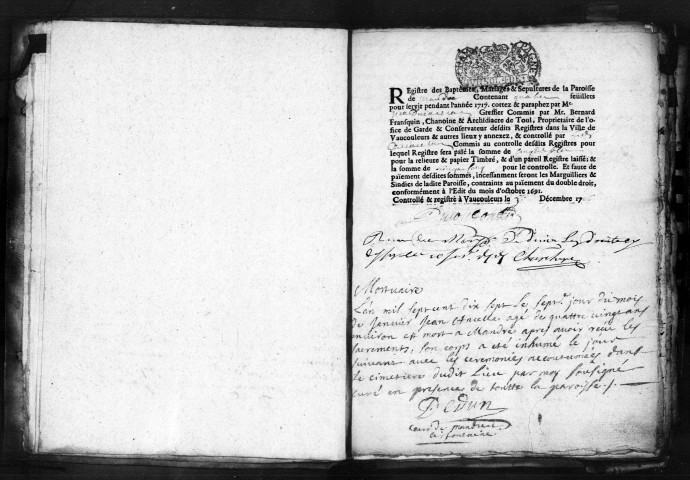 REgistre des Baptêmes, Mariages & Sepultures de la Paroisse
de Mandre Contenant quatre feuillets
pour servir pendant l'année 1717. cottez & paraphez par Me
Greffier Commis par Mr. Bernard
Fransquin, Chanoine & Archidiacre de Toul, Proprietaire de l'of-
fice de Garde & Conservateur desdits Registres dans la Ville de
Vaucouleurs & autres lieux y annexez, & controllé par
Commis au controlle desdits Registres pour
lequel Registre sera paié la somme de
pour la relieure & papier Timbré, & d'un pareil Registre laissé; &
la somme de pour le controlle. Et faute de
paiement desdites sommes, incessanment seront les Marguilliers &
Sindics de ladite Paroisse, contraints au paiement du double droit,
conformément à l'Edit du mois d'octobre 1691.
Controllé & registré à Vaucouleurs le Décembre 17
Mortuaire
L'an mil sept cent dix sept le sept.e jour du mois
de Janvier Jean agé de quattre vingt ans
environ est mort a Mandre apres avoir receu les
sacrements, son corps a été inhumé le jour
suivant avec les ceremonies accoutumées dans
le cimetiere dudit lieu par moy soussigné
curé en presence de toutte la paroisse ./.
curé de mandre